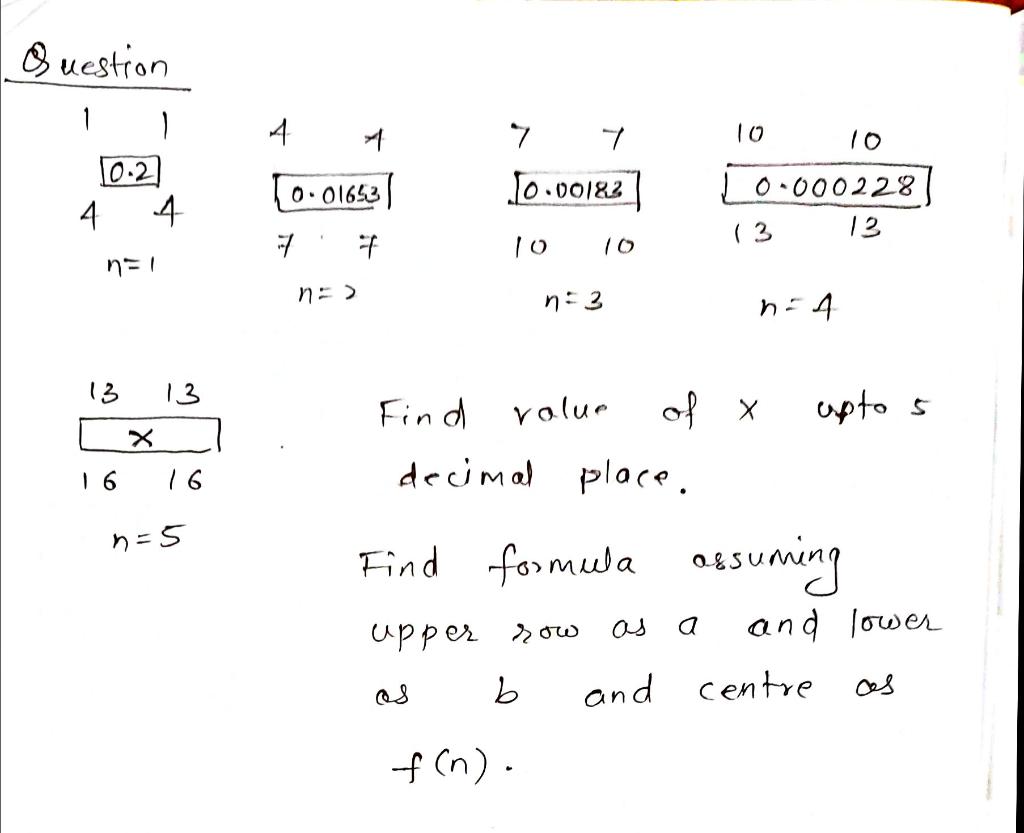 Question
1 1
0.2
4 4
n=1
4 4
0.01653
7 7
n=2
7 7
0.00183
10 10
n=3
10 10
0.000228
13 13
n=4
13 13
x
16 16
n=5
Find value of x upto 5
decimal place.
Find formula assuming
upper row as a and lower
as b and centre as
f(n).